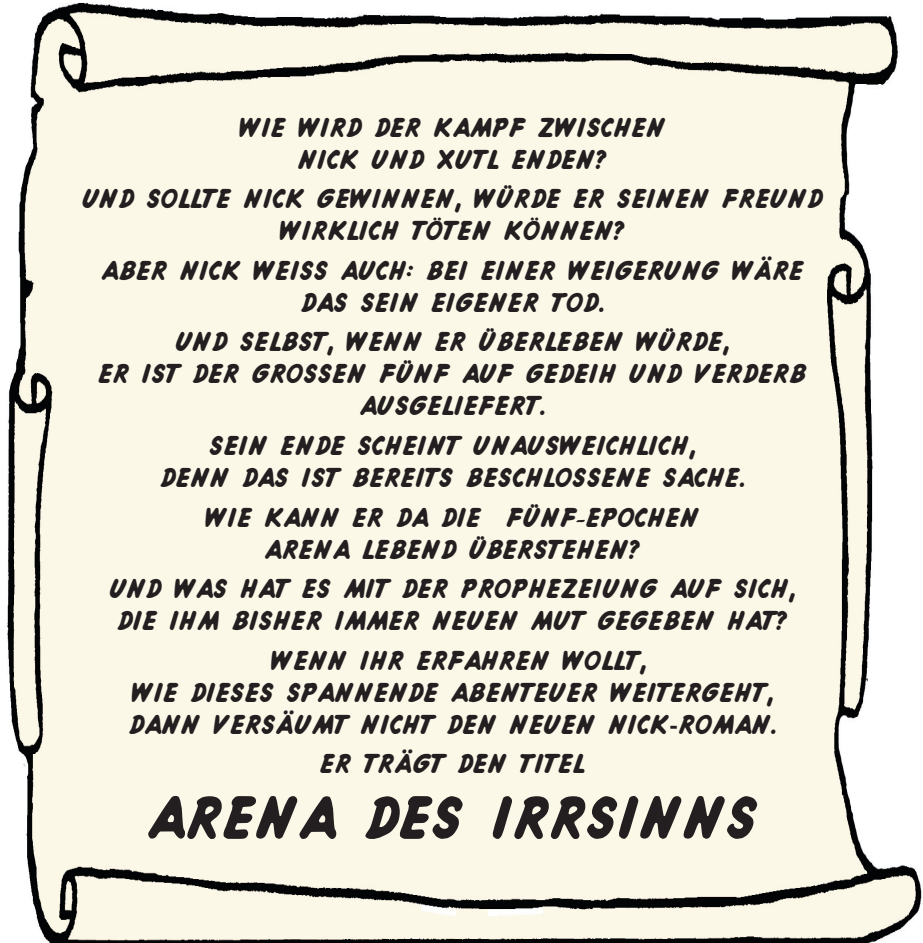 WIE WIRD DER KAMPF ZWISCHEN
NICK UND XUTL ENDEN?
UND SOLLTE NICK GEWINNEN, WÜRDE ER SEINEN FREUND
WIRKLICH TÖTEN KÖNNEN?
ABER NICK WEISS AUCH: BEI EINER WEIGERUNG WÄRE
DAS SEIN EIGENER TOD.
UND SELBST, WENN ER ÜBERLEBEN WÜRDE,
ER IST DER GROSSEN FÜNF AUF GEDEIH UND VERDERB
AUSGELIEFERT.
SEIN ENDE SCHEINT UNAUSWEICHLICH,
DENN DAS IST BEREITS BESCHLOSSENE SACHE.
WIE KANN ER DA DIE FÜNF-EPOCHEN
ARENA LEBEND ÜBERSTEHEN?
UND WAS HAT ES MIT DER PROPHEZEIUNG AUF SICH,
DIE IHM BISHER IMMER NEUEN MUT GEGEBEN HAT?
WENN IHR ERFAHREN WOLLT,
WIE DIESES SPANNENDE ABENTEUER WEITERGEHT,
DANN VERSÄUMT NICHT DEN NEUEN NICK-ROMAN.
ER TRÄGT DEN TITEL
ARENA DES IRRSINNS